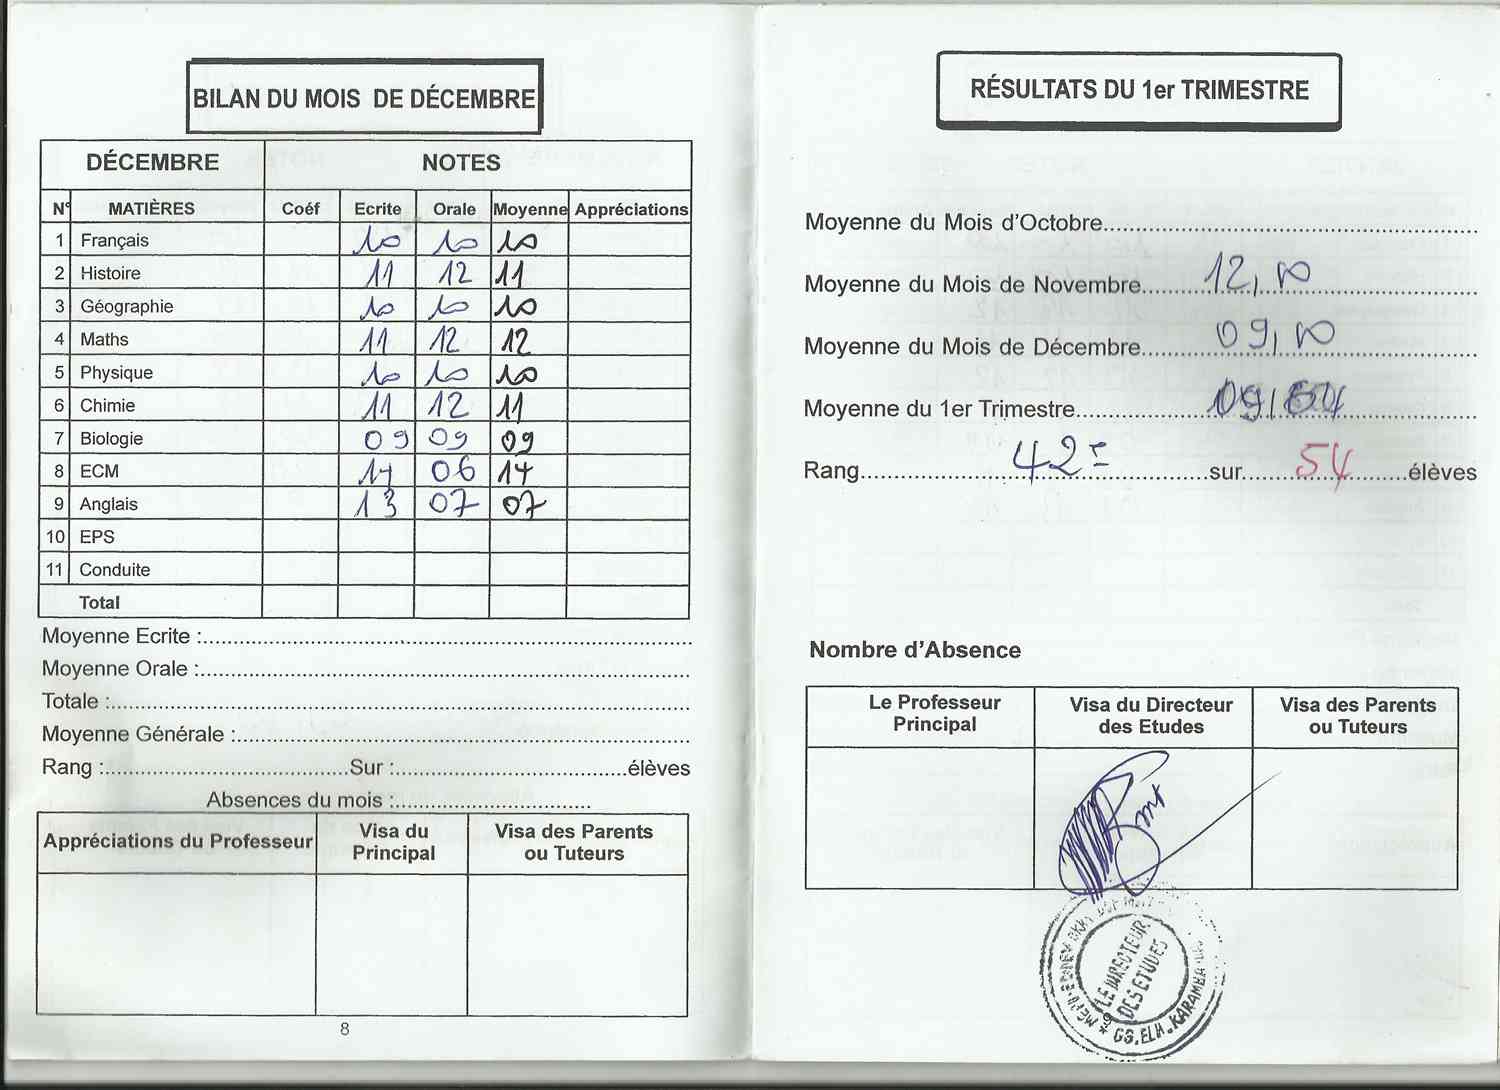 BILAN DU MOIS DE DÉCEMBRE
DÉCEMBRE NOTES
N° MATIÈRES Coéf Ecrite Orale Moyenne Appréciations
1 Français 10 10 10
2 Histoire 11 12 11
3 Géographie 10 10 10
4 Maths 11 12 12
5 Physique 10 10 10
6 Chimie 11 12 11
7 Biologie 09 09 09
8 ECM 14 06 14
9 Anglais 13 07 07
10 EPS
11 Conduite
Total
Moyenne Ecrite :
Moyenne Orale :
Totale :
Moyenne Générale :
Rang : Sur : élèves
Absences du mois :
Appréciations du Professeur Visa du Principal Visa des Parents ou Tuteurs
8
RÉSULTATS DU 1er TRIMESTRE
Moyenne du Mois d'Octobre
Moyenne du Mois de Novembre 12,00
Moyenne du Mois de Décembre 09,00
Moyenne du 1er Trimestre
Rang 42e sur 54 élèves
Nombre d'Absence
Le Professeur Principal Visa du Directeur des Etudes Visa des Parents ou Tuteurs
LE DIRECTEUR
DES ETUDES
GS.ELH.KARAMBA